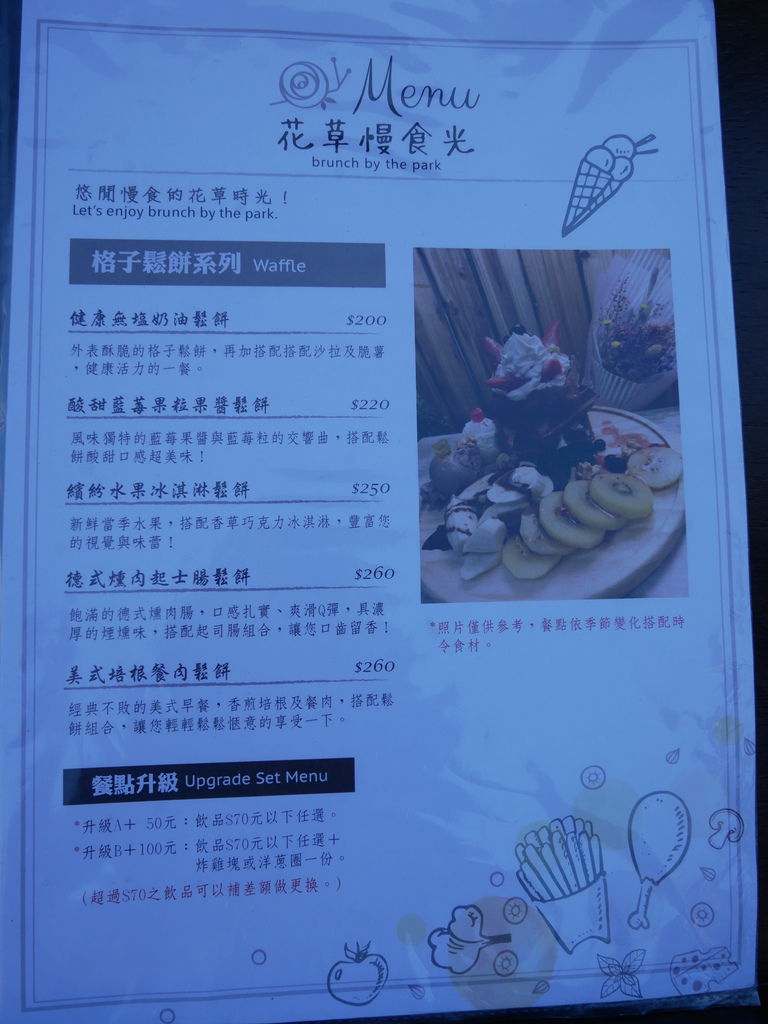 Menu
花草慢食光
brunch by the park
悠閒慢食的花草時光！
Let's enjoy brunch by the park.
格子鬆餅系列 Waffle
健康無塩奶油鬆餅 $200
外表酥脆的格子鬆餅，再加搭配搭配沙拉及脆薯
，健康活力的一餐。
酸甜藍莓果粒果醬鬆餅 $220
風味獨特的藍莓果醬與藍莓粒的交響曲，搭配鬆
餅酸甜口感超美味！
繽紛水果冰淇淋鬆餅 $250
新鮮當季水果，搭配香草巧克力冰淇淋，豐富您
的視覺與味蕾！
德式燻肉起士腸鬆餅 $260
飽滿的德式燻肉腸，口感扎實、爽滑Q彈，具濃
厚的煙燻味，搭配起司腸組合，讓您口齒留香！
美式培根餐肉鬆餅 $260
經典不敗的美式早餐，香煎培根及餐肉，搭配鬆
餅組合，讓您輕輕鬆鬆愜意的享受一下。
*照片僅供參考，餐點依季節變化搭配時
令食材。
餐點升級 Upgrade Set Menu
*升級A＋ 50元：飲品$70元以下任選。
*升級B＋100元：飲品$70元以下任選＋
炸雞塊或洋蔥圈一份。
(超過$70之飲品可以補差額做更換。)